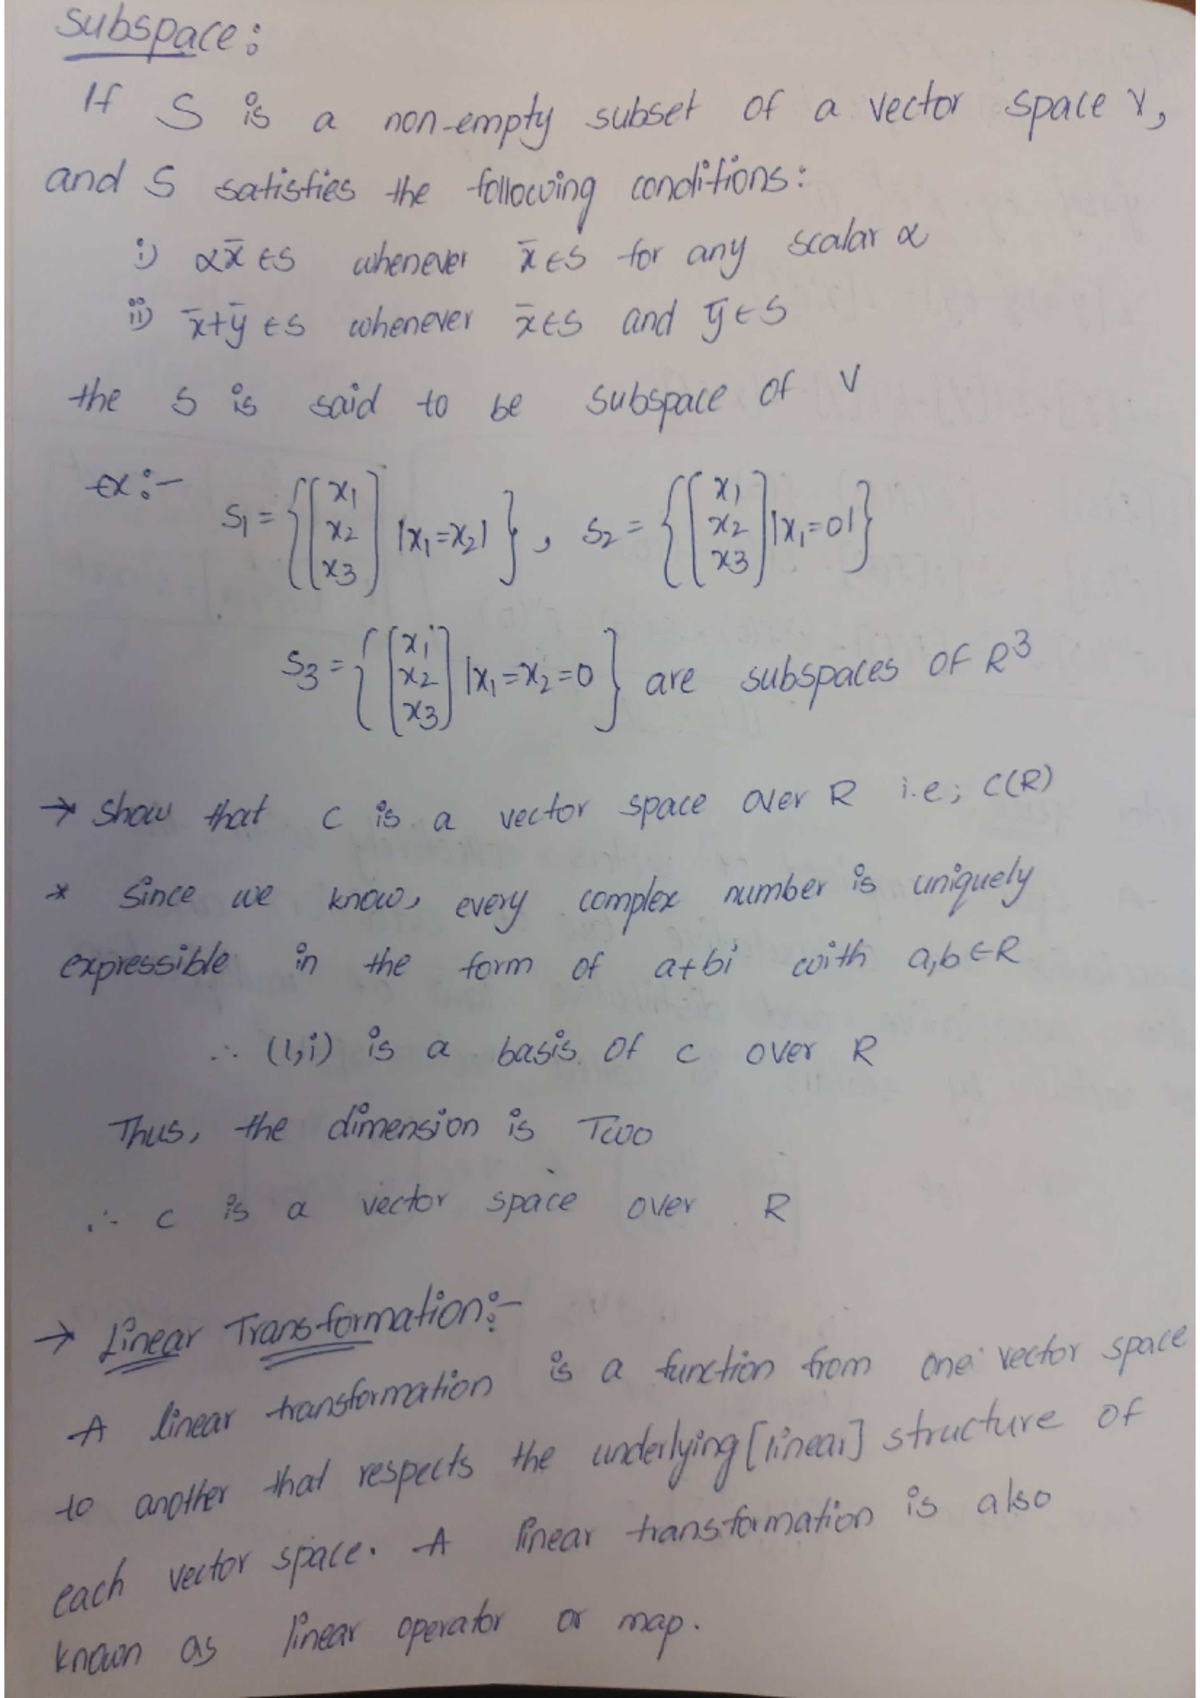 Subspace:
If S is a non-empty subset of a vector space V,
and S satisfies the following conditions:
i) αx̄ ∈ S whenever x̄ ∈ S for any scalar α
ii) x̄+ȳ ∈ S whenever x̄ ∈ S and ȳ ∈ S
the S is said to be subspace of V
ex:- S₁ = {[x₁ x₂ x₃] |x₁=x₂| }, S₂ = {[x₁ x₂ x₃] |x₁=0|}
S₃ = {[x₁ x₂ x₃] |x₁=x₂=0 } are subspaces of R³
→ Show that C is a vector space over R i.e; C(R)
* Since we know, every complex number is uniquely
expressible in the form of a+bi with a,b ∈ R
∴ (1,i) is a basis of C over R
Thus, the dimension is Two
∴ C is a vector space over R
→ Linear Transformation:-
A linear transformation is a function from one vector space
to another that respects the underlying [linear] structure of
each vector space. A linear transformation is also
known as linear operator or map.